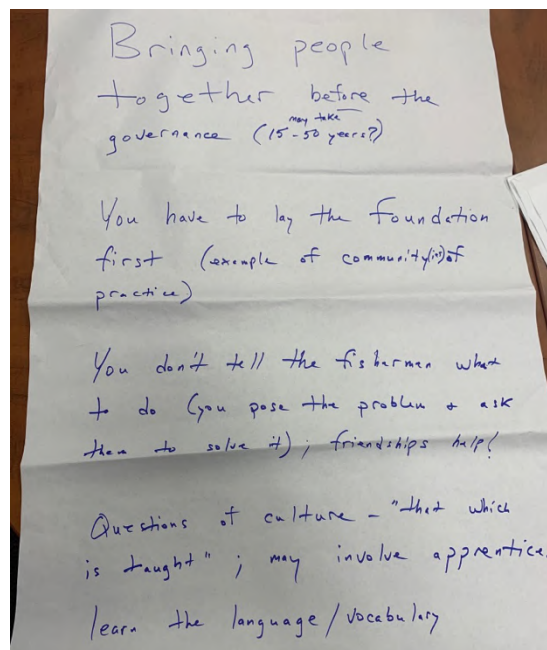 Bringing people
together before the
may take
governance (15-50 years?)
You have to lay the foundation
first (example of community(ies) of
practice)
You don't tell the fisherman what
to do (you pose the problem + ask
them to solve it); friendships help!
Questions of culture - "that which
is taught"; may involve apprentice
learn the language/vocabulary